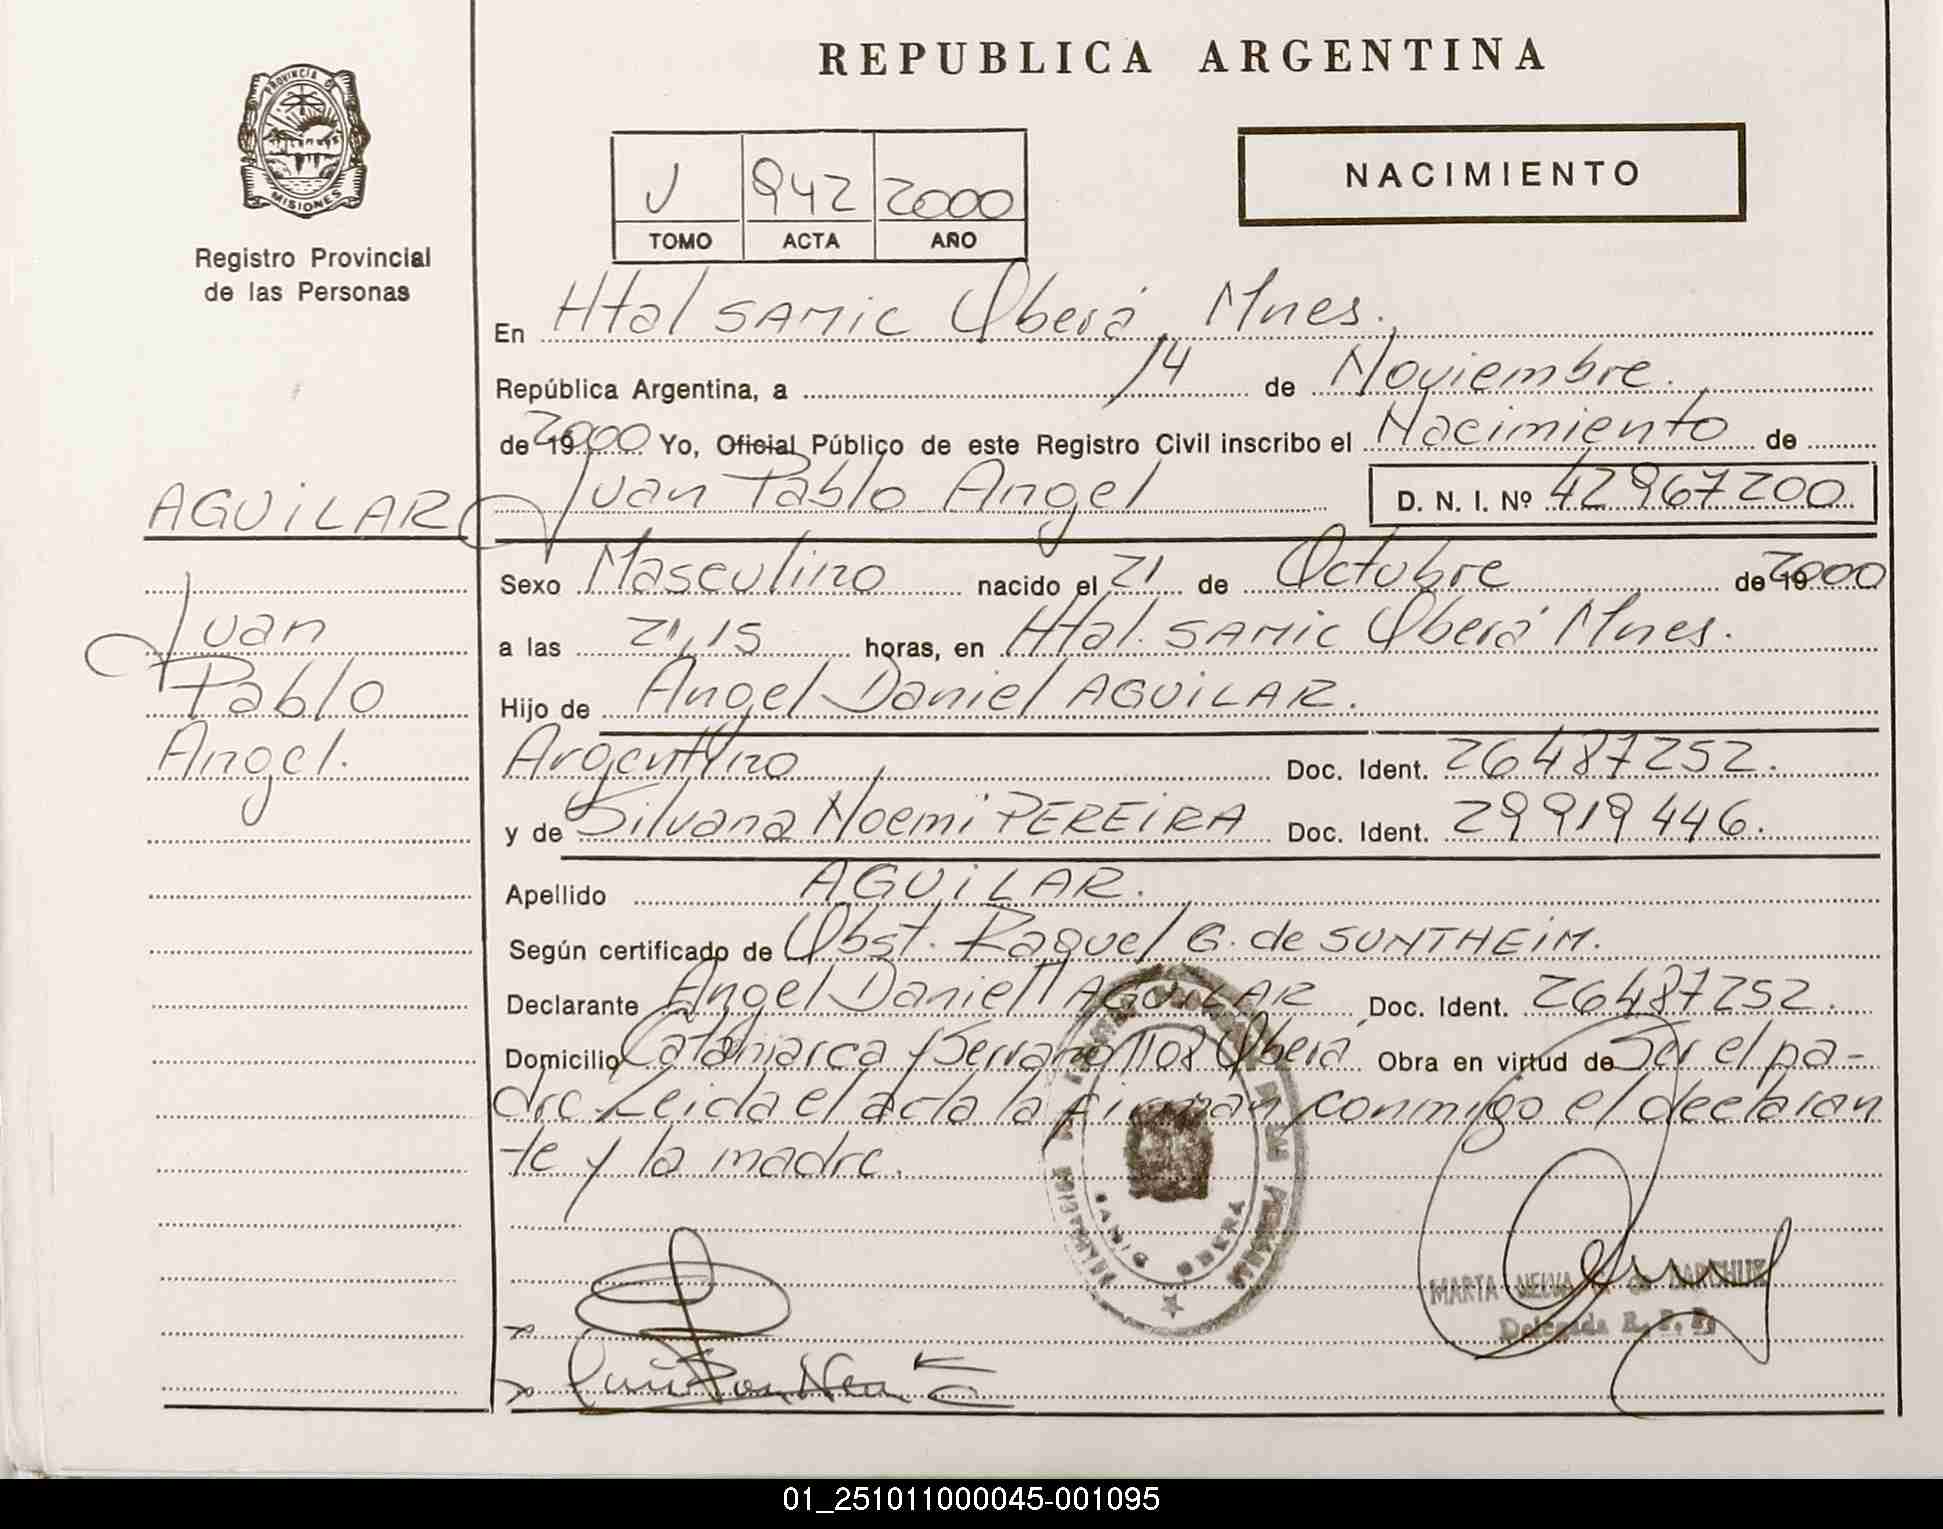 REPUBLICA ARGENTINA
PROVINCIA DE
MISIONES
Registro Provincial
de las Personas
V 942 2000
TOMO ACTA AÑO
NACIMIENTO
En Htal SAMIC Oberá, Mnes.
República Argentina, a 14 de Noviembre.
de 19 2000 Yo, Oficial Público de este Registro Civil inscribo el Nacimiento de
Juan Pablo Angel D. N. I. Nº 42967200.
AGUiLAR
Juan
Pablo
Angel.
Sexo Masculino nacido el 21 de Octubre de 19 2000
a las 21,15 horas, en Htal. SAMic Oberá Mnes.
Hijo de Angel Daniel AGUiLAR.
Argentino Doc. Ident. 26487252.
y de Silvana Noemi PEREiRA Doc. Ident. 29919446.
Apellido AGUiLAR.
Según certificado de Obst. Raquel G. de SUNTHEiM.
Declarante Angel Daniel AGUiLAR Doc. Ident. 26487252.
Domicilio Catamarca y Serrano 1108 Oberá Obra en virtud de Ser el pa-
dre. Leida el acta la firman conmigo el declaran
te y la madre.
OBERA
MARTA
Delegada R. P. P.
01_251011000045-001095